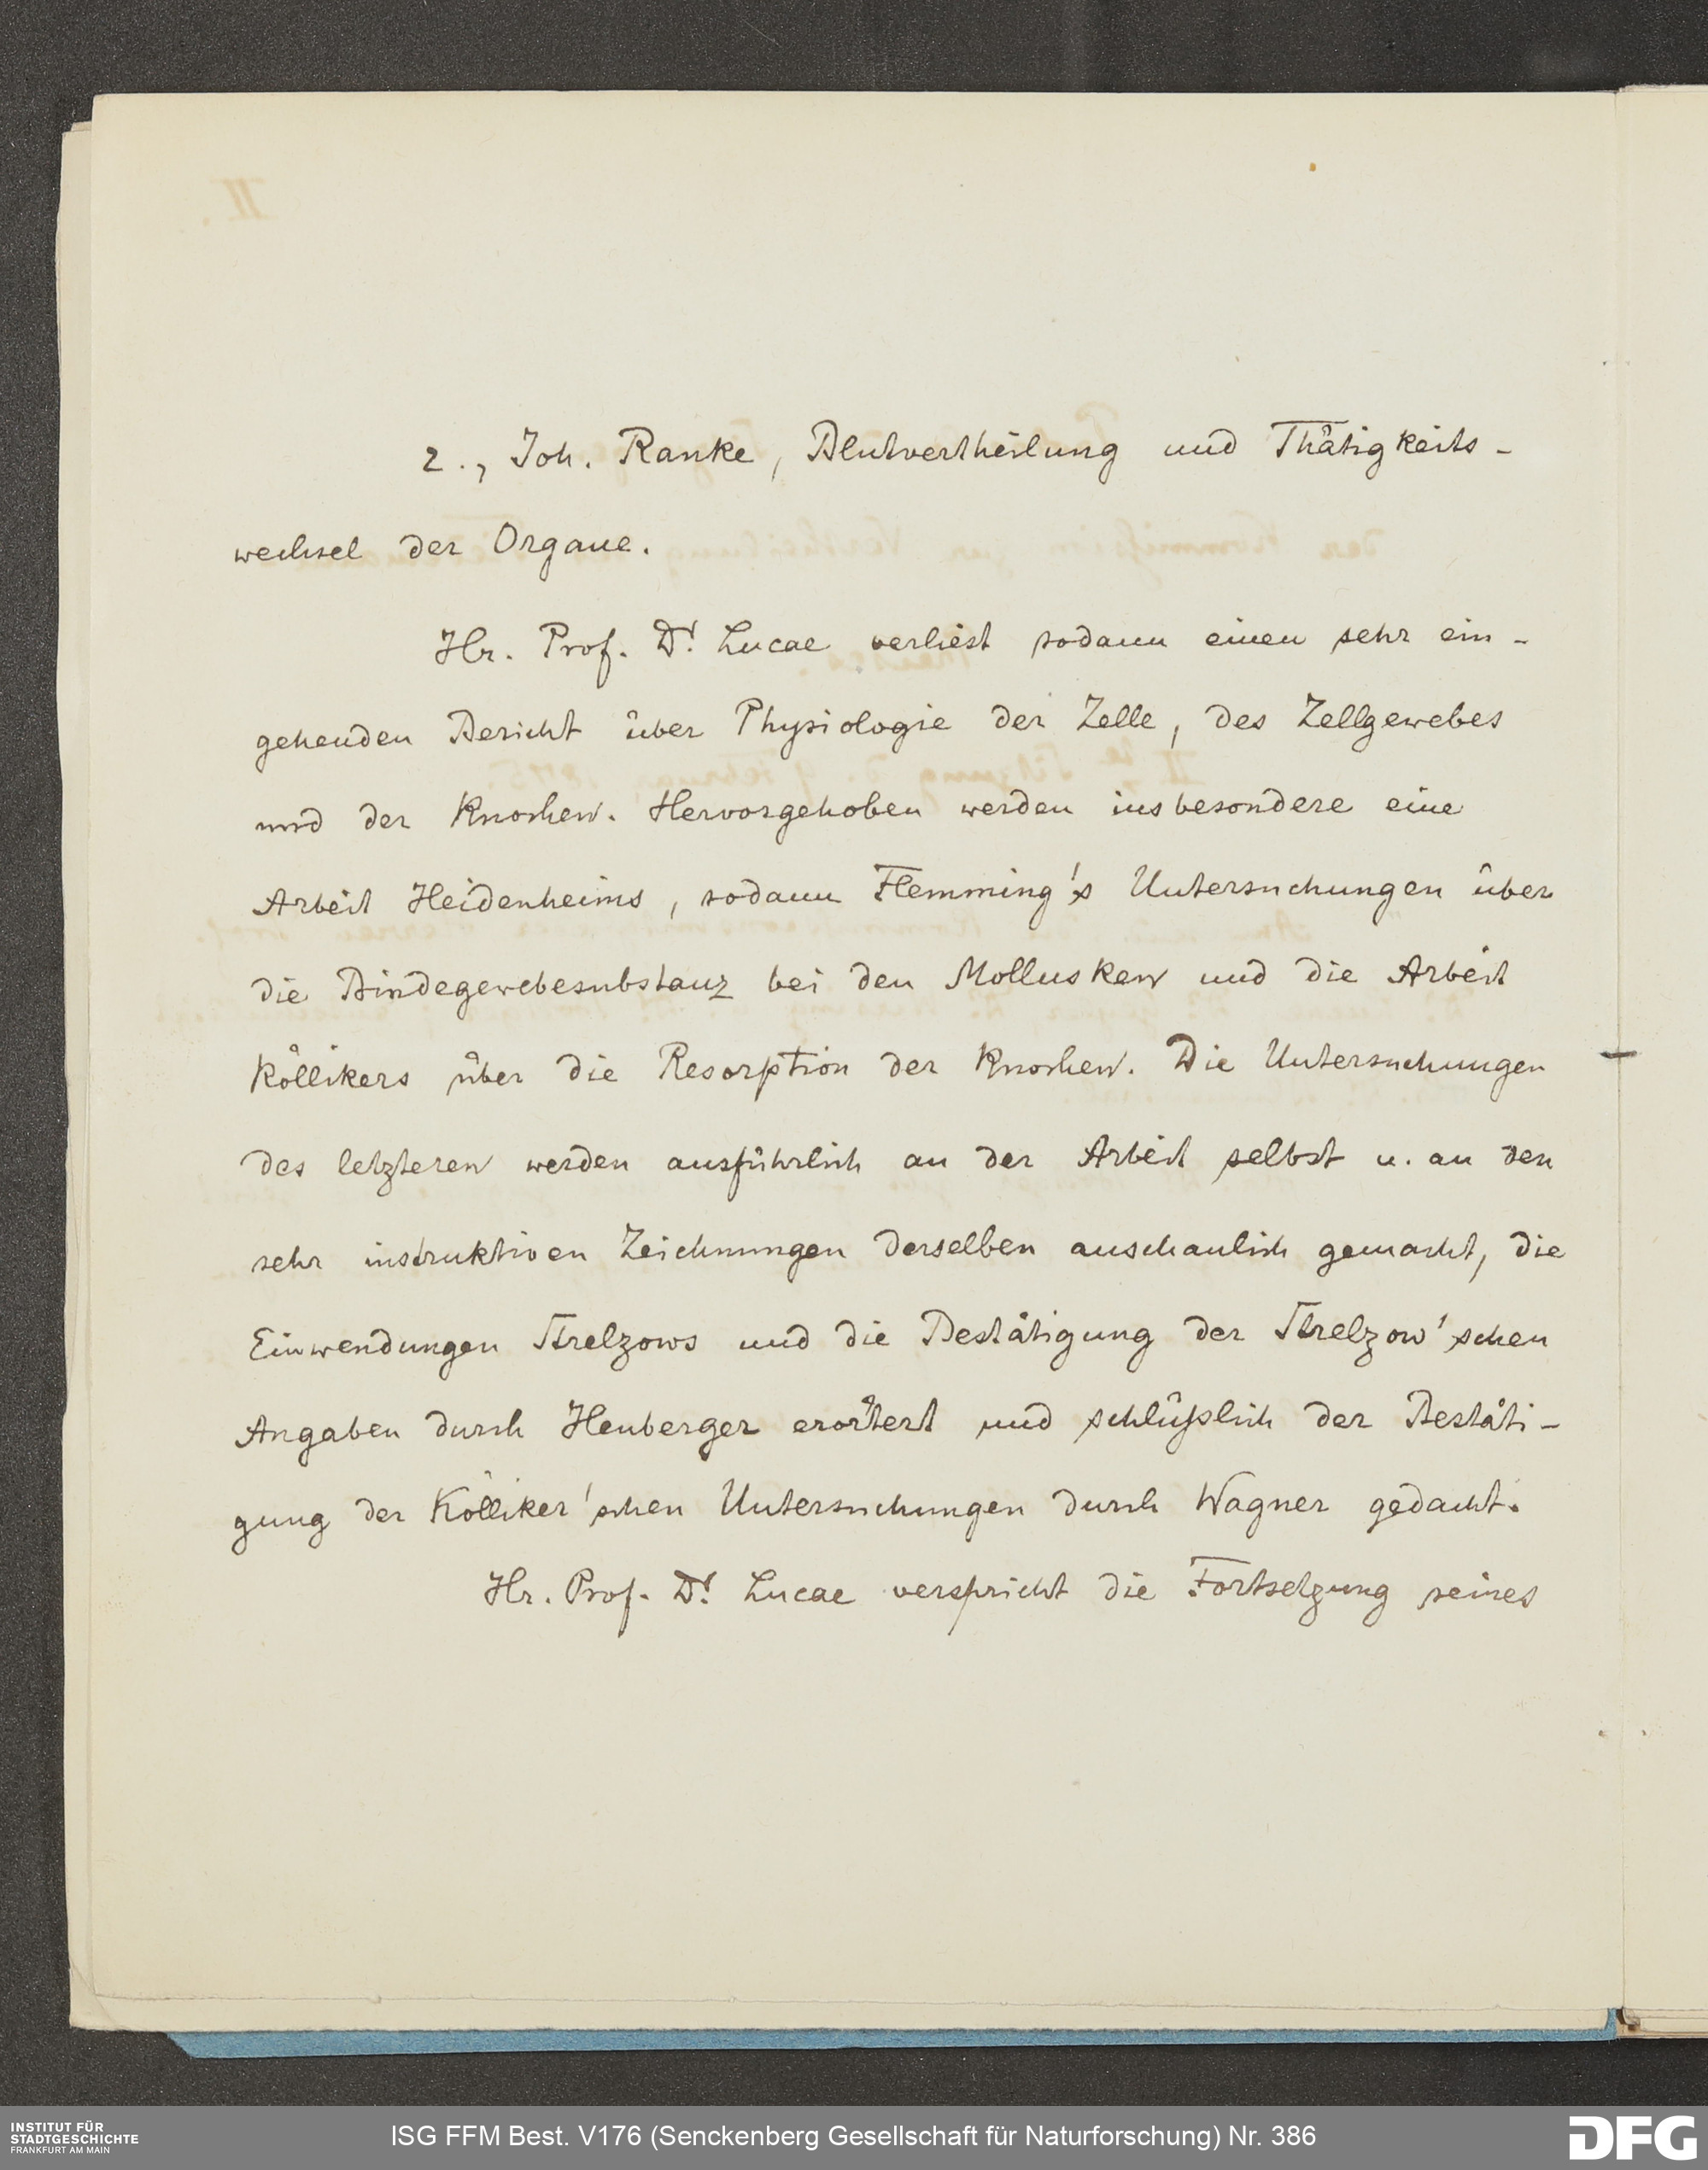 2., Joh. Ranke, Blutvertheilung und Thätigkeits-
wechsel der Organe.
Hr. Prof. Dr. Lucae verliest sodann einen sehr ein-
gehenden Bericht über Physiologie der Zelle, des Zellgewebes
und der Knochen. Hervorgehoben werden insbesondere eine
Arbeit Heidenheims, sodann Flemming's Untersuchungen über
die Bindegewebesubstanz bei den Mollusken und die Arbeit
Köllikers über die Resorption der Knochen. Die Untersuchungen
des letzteren werden ausführlich an der Arbeit selbst u. an den
sehr instruktiven Zeichnungen derselben anschaulich gemacht, die
Einwendungen Strelzows und die Bestätigung der Strelzow'schen
Angaben durch Heuberger erörtert und schlüßlich der Bestäti-
gung der Kölliker'schen Untersuchungen durch Wagner gedacht.
Hr. Prof. Dr. Lucae verspricht die Fortsetzung seines
INSTITUT FÜR
STADTGESCHICHTE
FRANKFURT AM MAIN
ISG FFM Best. V176 (Senckenberg Gesellschaft für Naturforschung) Nr. 386
DFG